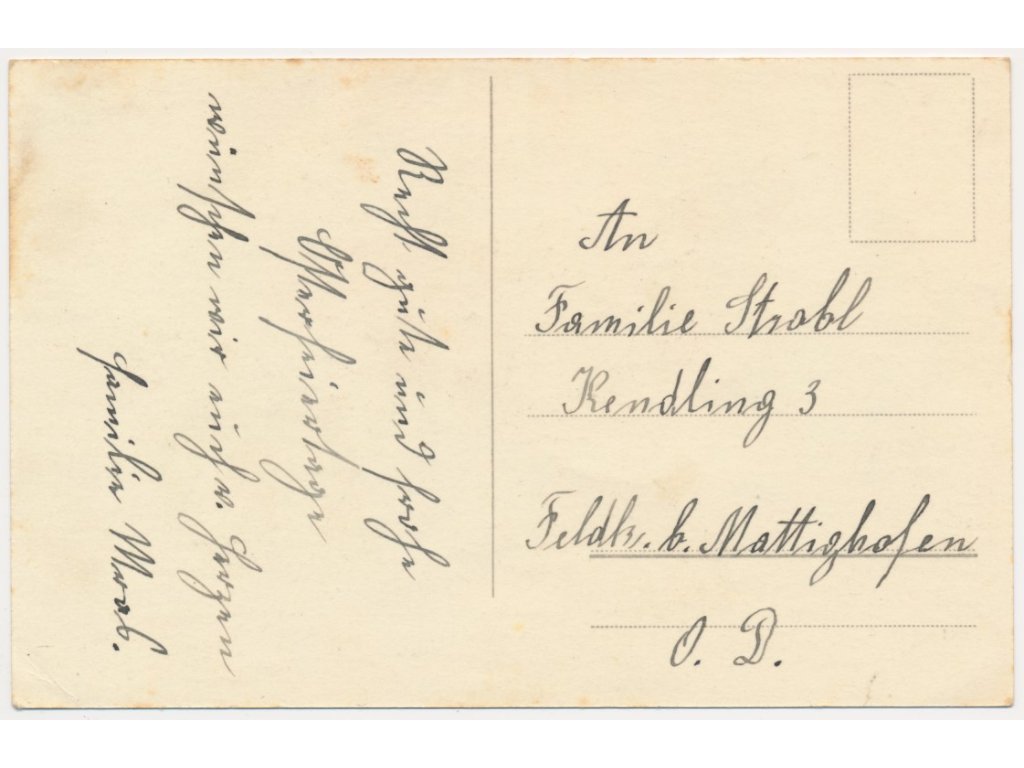 Recht gute und frohe
Osterfeiertage
wünschen wir euch v. Herzen
Familie
An
Familie Strobl
Kendling 3
Feldk. b. Mattighofen
O. D.